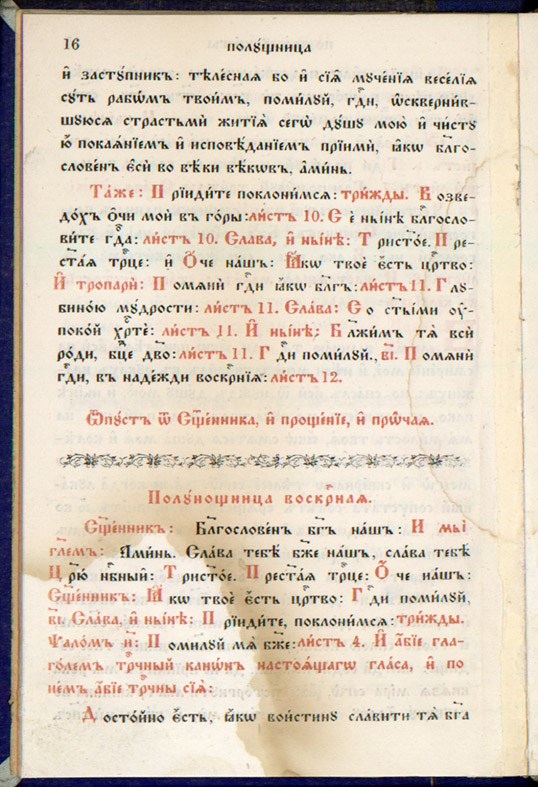 16
полꙋ́щница
и҆ застꙋ́пникъ: тѣлє́сная бо и҆ сїѧ̑ мꙋчє́нїя весє́лїя
сꙋ́ть рабѡ́мъ твои̑мъ, поми́лꙋй, гдⷭ҇и, ѡ҆скверни́в-
шꙋюсѧ страстьмѝ житїѧ̀ сегѡ̀ дꙋшꙋ мою̀ и҆ чи́стꙋ
ю҆̀ покая́нїемъ и҆ исповѣ́данїемъ прїимѝ, ꙗ҆́кѡ бл҃го-
слове́нъ є҆сѝ во вѣ́ки вѣкѡ́въ, а҆ми́нь.
Та́же: Прїиди́те поклони́мся: три́жды. Возве-
до́хъ о҆́чи моѝ въ го́ры: ли́стъ 10. Се́ ны́нѣ бл҃госло-
ви́те гдⷭ҇а: ли́стъ 10. Сла́ва, и҆ ны́нѣ: Трист҃о́е. Пре-
ст҃а́я трⷪ҇це: и҆ Ѻ҆́че на́шъ: Ꙗ҆́кѡ твоѐ є҆́сть црⷭ҇тво:
И҆ тропарѝ: Помянѝ гдⷭ҇и ꙗ҆́кѡ бл҃гъ: ли́стъ 11. Глꙋ-
бино́ю мꙋ́дрости: ли́стъ 11. Сла́ва: Со ст҃ы́ми оу҆-
поко́й хрⷭ҇тѐ: ли́стъ 11. И҆ ны́нѣ: Бл҃жи́мъ тѧ̀ всѝ
ро́ди, бцⷣе дв҃о: ли́стъ 11. Гдⷭ҇и поми́лꙋй, в҃і. Помянѝ
гдⷭ҇и, въ наде́жди воскрⷭ҇нїя: ли́стъ 12.
Ѿпꙋстъ ѿ Сщ҃е́нника, и҆ проше́нїе, и҆ прѡ́чая.
Полꙋнощница воскрⷭ҇ная.
Сщ҃е́нникъ: Бл҃гослове́нъ бг҃ъ на́шъ: И мы́
гл҃емъ: А҆ми́нь. Сла́ва тебѣ̀ бж҃е на́шъ, сла́ва тебѣ̀
Цр҃ю̀ нбⷭ҇ный: Трист҃о́е. Прест҃а́я трⷪ҇це: Ѻ҆́че на́шъ:
Сщ҃е́нникъ: Ꙗ҆́кѡ твоѐ є҆́сть црⷭ҇тво: Гдⷭ҇и поми́лꙋй,
в҃і. Сла́ва, и҆ ны́нѣ: Прїиди́те, поклони́мсѧ: три́жды.
Ѱало́мъ н҃: Поми́лꙋй мѧ̀ бж҃е: ли́стъ 4. И҆ а҆́бїе гла-
го́лемъ трⷪ҇чный кано́нъ настоя́щагѡ гла́са, и҆ по
не́мъ а҆́бїе трⷪ҇чны сїѧ̑:
Досто́йно є҆́сть, ꙗ҆́кѡ вои́стинꙋ сла́вити тѧ̀ бг҃а